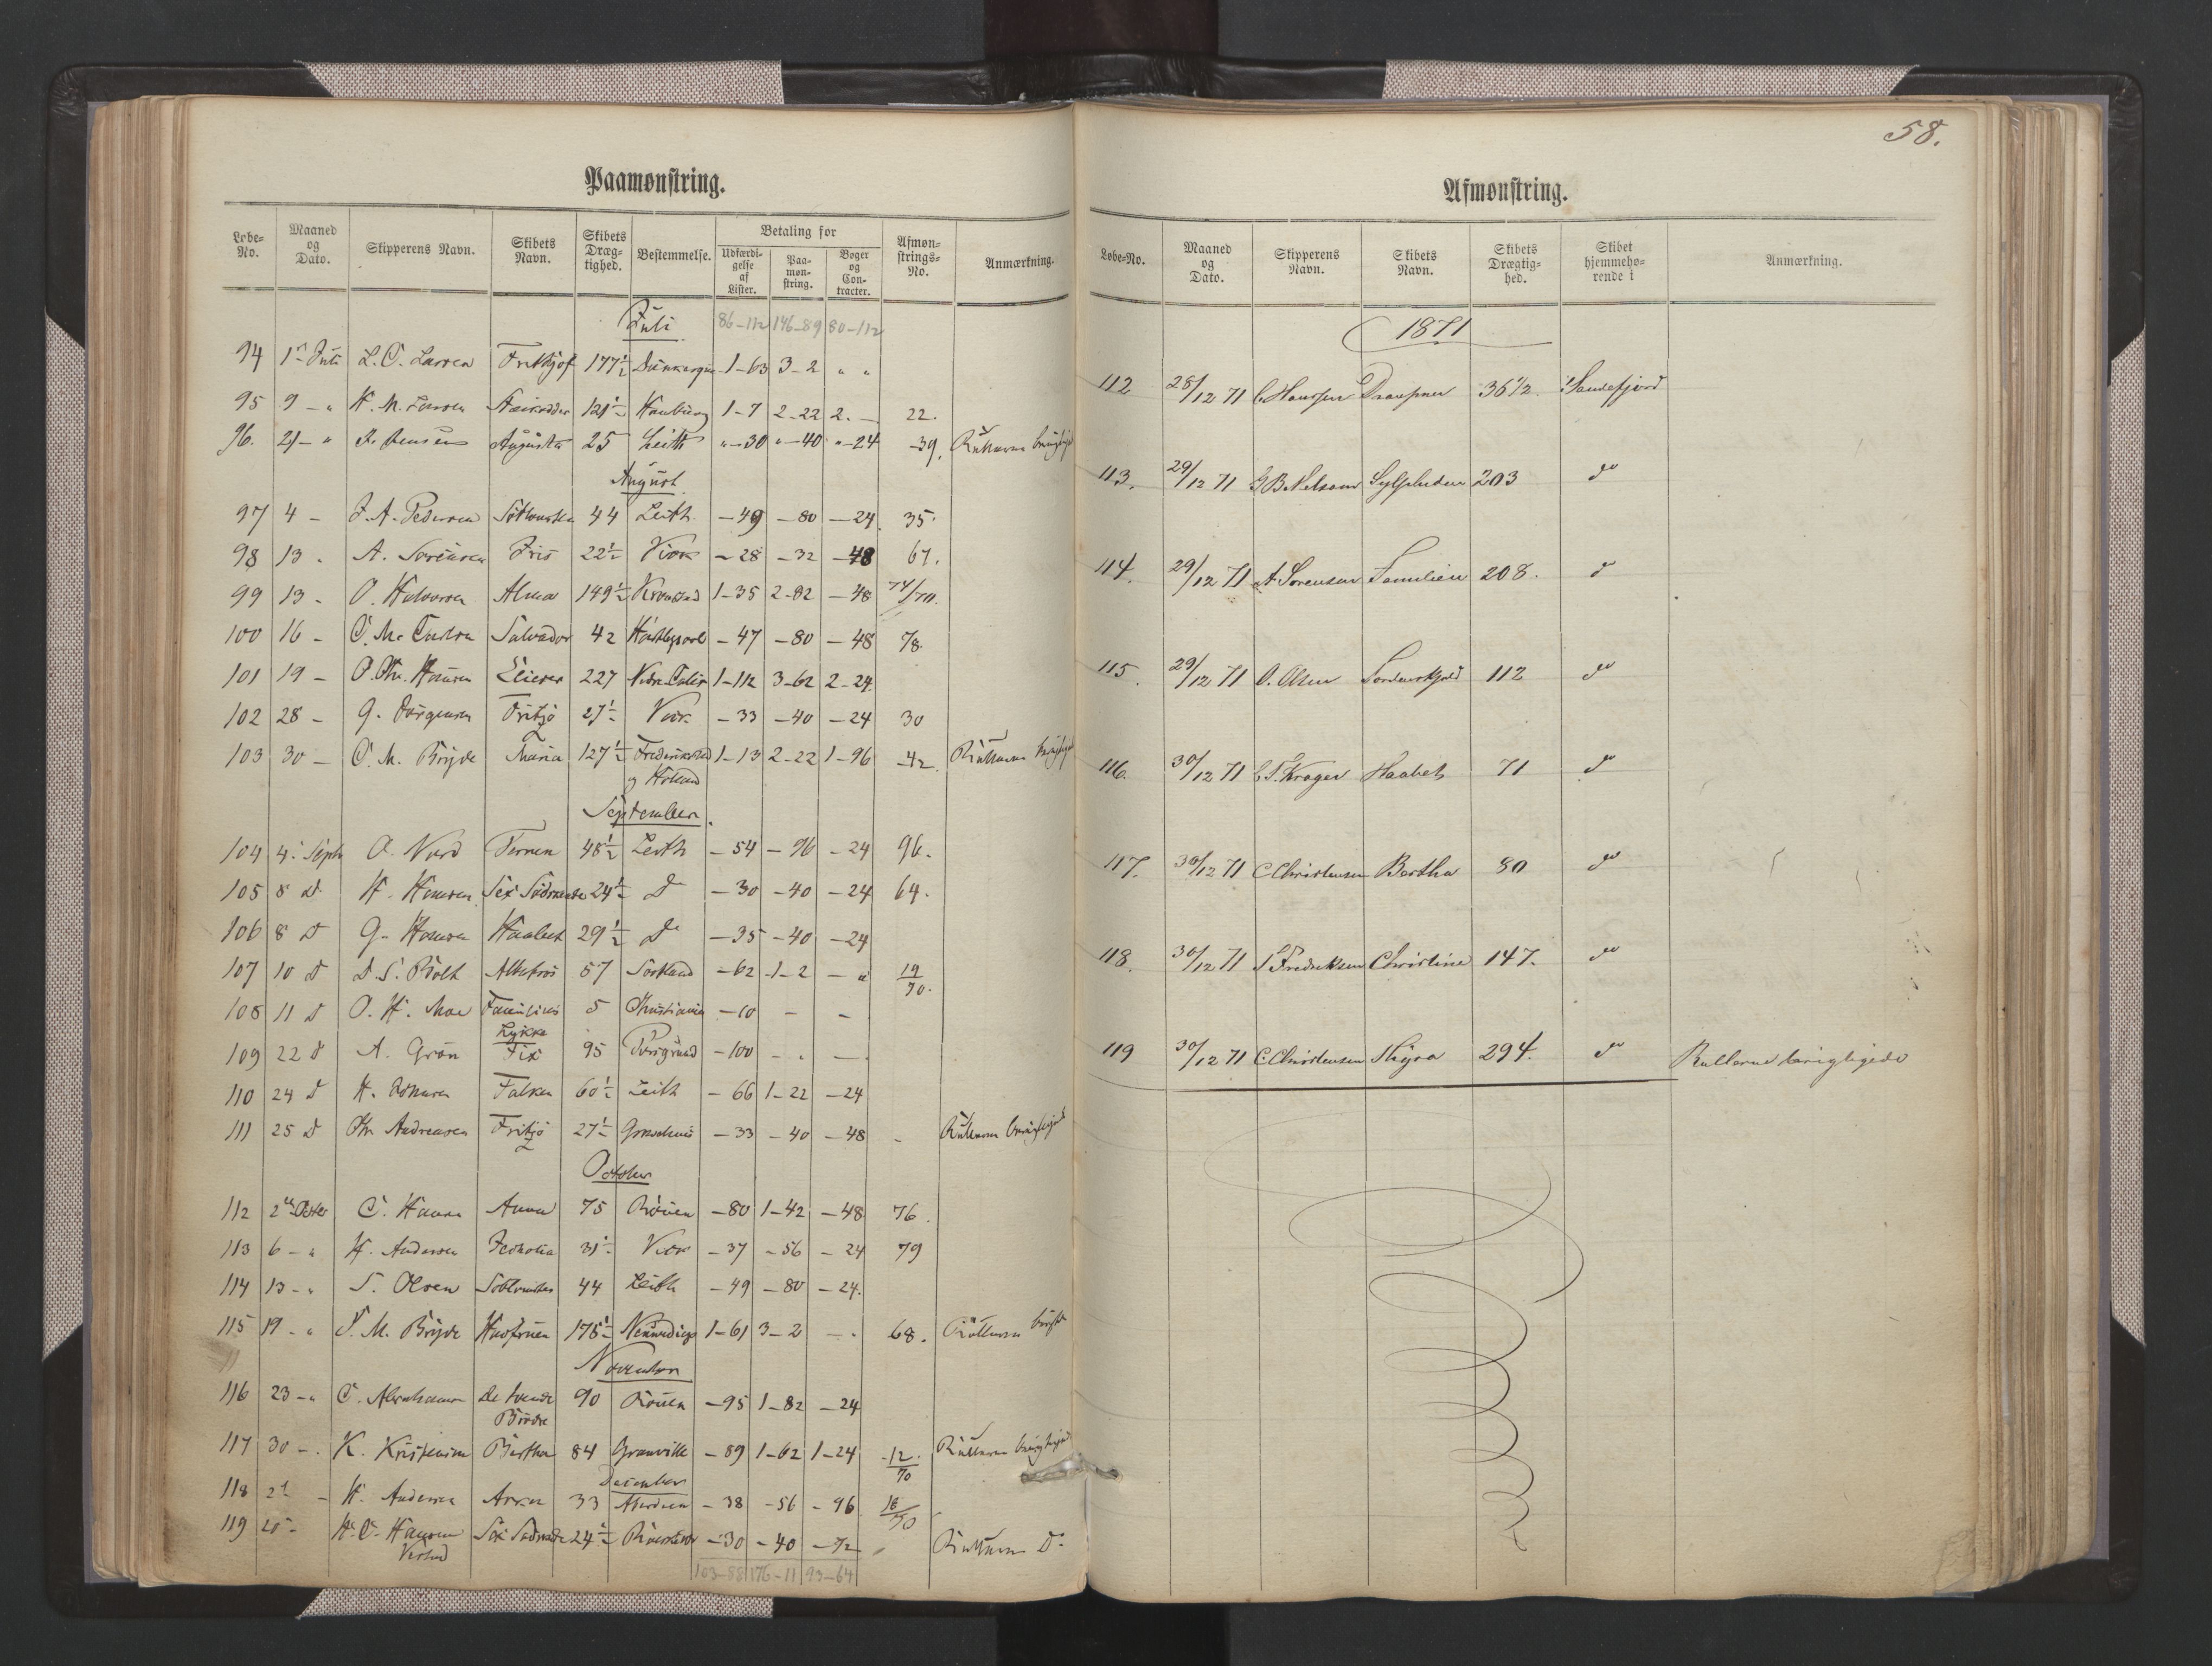 58.
Paamønstring.
Løbe-No. Maaned og Dato. Skipperens Navn. Skibets Navn. Skibets Drægtighed. Bestemmelse. Betaling for Udfærdigelse af Lister. Paamønstring. Bøger og Contracter. Afmønstrings-No. Anmærkning.
Juli 86-112 146-89 80-112
94 1 Juli L. C. Larsen Fritkjof 177½ Dünkerque 1-63 3-2 " "
95 9 - " H. M. Larsen 121½ Hamburg 1-7 2-22 2. — 22.
96. 21 - " J. Jensen Augusta 25 Leith "-30 "-40 "-24 39.
August
97 4 - J. A. Pedersen 44 Leith -49 -80 -24 35.
98 13 - A. Sørensen Iris 22½ -28 -32 -48 67.
99 13 - O. Halvorsen Alma 149½ Kronstad 1-35 2-82 -48 74/70.
100 16 - C. M. Salvador 42 Hartlepool -47 -80 -48 78.
101 19 - O. Chr. Hansen 227 1-112 3-62 2-24.
102 28 - G. Jørgensen Fritjo 27½ -33 -40 -24 30
103 30 - C. M. Bryde Maria 127½ Frederikstad 1-13 2-22 1-96 42.
og Holland
September.
104 4. Septr O. Ternen 48½ Leith -54 -96 -24 96.
105 8 D H. Hansen Sex Sødskende 24½ D -30 -40 -24 64.
106 8 D G. Hansen Haabet 29½ Do -35 -40 -24
107 10 D Albatros 57 Skotland -62 1-2 - " 19/70.
108 11 D O. H. Moe Familiens 5 Christiania -10 - -
Lykke
109 22 D A. Grøn Fix 95 Porsgrund -100 - -
110 24 D H. Falken 60½ Leith -66 1-22 -24
111 25 D Chr Andreasen Fritjo 27½ -33 -40 -48 -
October
112 2 Octbr C. Hansen Anna 75 Rouen -80 1-42 -48 76.
113 6 - " H. Andersen 31½ -37 -56 -24 79
114 13 - " S. Olsen 44 Leith -49 -80 -24.
115 19 - " S. M. Bryde Havfruen 175½ 1-61 3-2 - 68.
November
116 23 - " C. Abrahamsen De tvende 90 Rouen -95 1-82 -24
Brødre
117 30 - K. Kristensen Bertha 84 Granville -89 1-62 1-24 12/70
December
118 2 - H. Andersen Anna 33 -38 -56 -96 18/70
119 H. C. Hansen Sex Sødskende 24½ -30 -40 -72 Do
103-88 176-11 93-64
Afmønstring.
Løbe-No. Maaned og Dato. Skipperens Navn. Skibets Navn. Skibets Drægtighed. Skibet hjemmehørende i Anmærkning.
1871
112 28/12 71 C Hansen Draupner 36½. Sandefjord
113. 29/12 71 G B Nielsen Sylphiden 203 do
114. 29/12 71 A Sørensen Familien 208. do
115. 29/12 71 O. Olsen Tordenskjold 112 do
116. 30/12 71 Haabet 71 do
117. 30/12 71 C Christensen Bertha 80 do
118. 30/12 71 S Fredriksen Christine 147. do
119 30/12 71 C Christensen Thyra 294. do Rullerne berigtigede